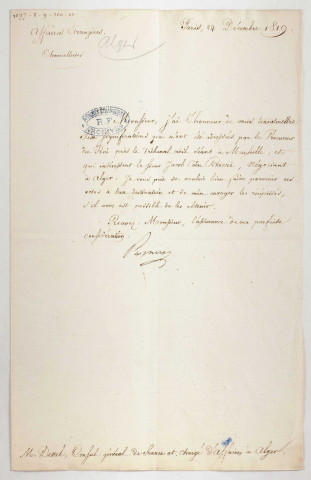 Affaires Etrangères.
Chancelleries
Alger
Paris, 14 Décembre 1819
R.F.
Monsieur, j'ai l'honneur de vous transmettre
significations qui m'ont été adressées par le Procureur
du Roi près le Tribunal civil séant à Marseille, et
qui intéressent le Sieur Jacob Négociant
à Alger. Je vous prie de vouloir bien faire parvenir ces
actes à leur destination et de m'en envoyer les récépissés,
s'il vous est possible de les obtenir.
Recevez, Monsieur, l'assurance de ma parfaite
considération.
Mr. Deval, Consul général de France et chargé d'affaires à Alger.